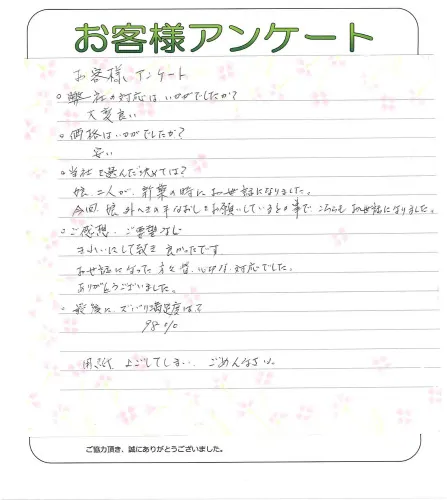 お客様アンケート
お客様アンケート
○弊社の対応はいかがでしたか?
大変良い
○価格はいかがでしたか?
安い
○当社を選んだ決めては?
娘二人が、新築の時にお世話になりました。
今回、娘、外への手なおしをお願いしているとの事で、こちらもお世話になりました。
○ご感想、ご要望など
きれいにして戴き良かったです
お世話になった方々皆、心切な対応でした。
ありがとうございました。
○最後に、ズバリ満足度は?
98%
用紙、よごしてしまい、ごめんなさい。
ご協力頂き、誠にありがとうございました。